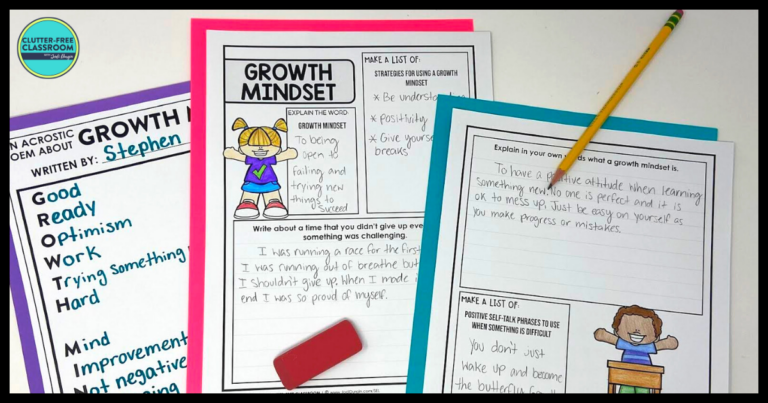 CLUTTER-FREE
CLASSROOM
AN ACROSTIC
POEM ABOUT GROWTH
WRITTEN BY: Stephen
Good
Ready
Optimism
Work
Trying something
Hard
Mind
Improvement
Not negative
GROWTH
MINDSET
EXPLAIN THE WORD:
GROWTH MINDSET
To being
open to
failing and
trying new
things to
succeed
MAKE A LIST OF:
STRATEGIES FOR USING A GROWTH
MINDSET
* Be
* positivity
* Give
breaks
Write about a time that you didn't give up
something was challenging.
I was running a race for the first
I was running out of breathe but
I shouldn't give up. When I made
end I was so proud of myself.
Explain in your own words what a growth mindset is.
To have a positive attitude when learning
something new. No one is perfect and it is
ok to mess up. Just be easy on yourself as
you make progress or mistakes.
MAKE A LIST OF:
POSITIVE SELF-TALK PHRASES TO USE
WHEN SOMETHING IS DIFFICULT
You don't just
wake up and become
the butterfly